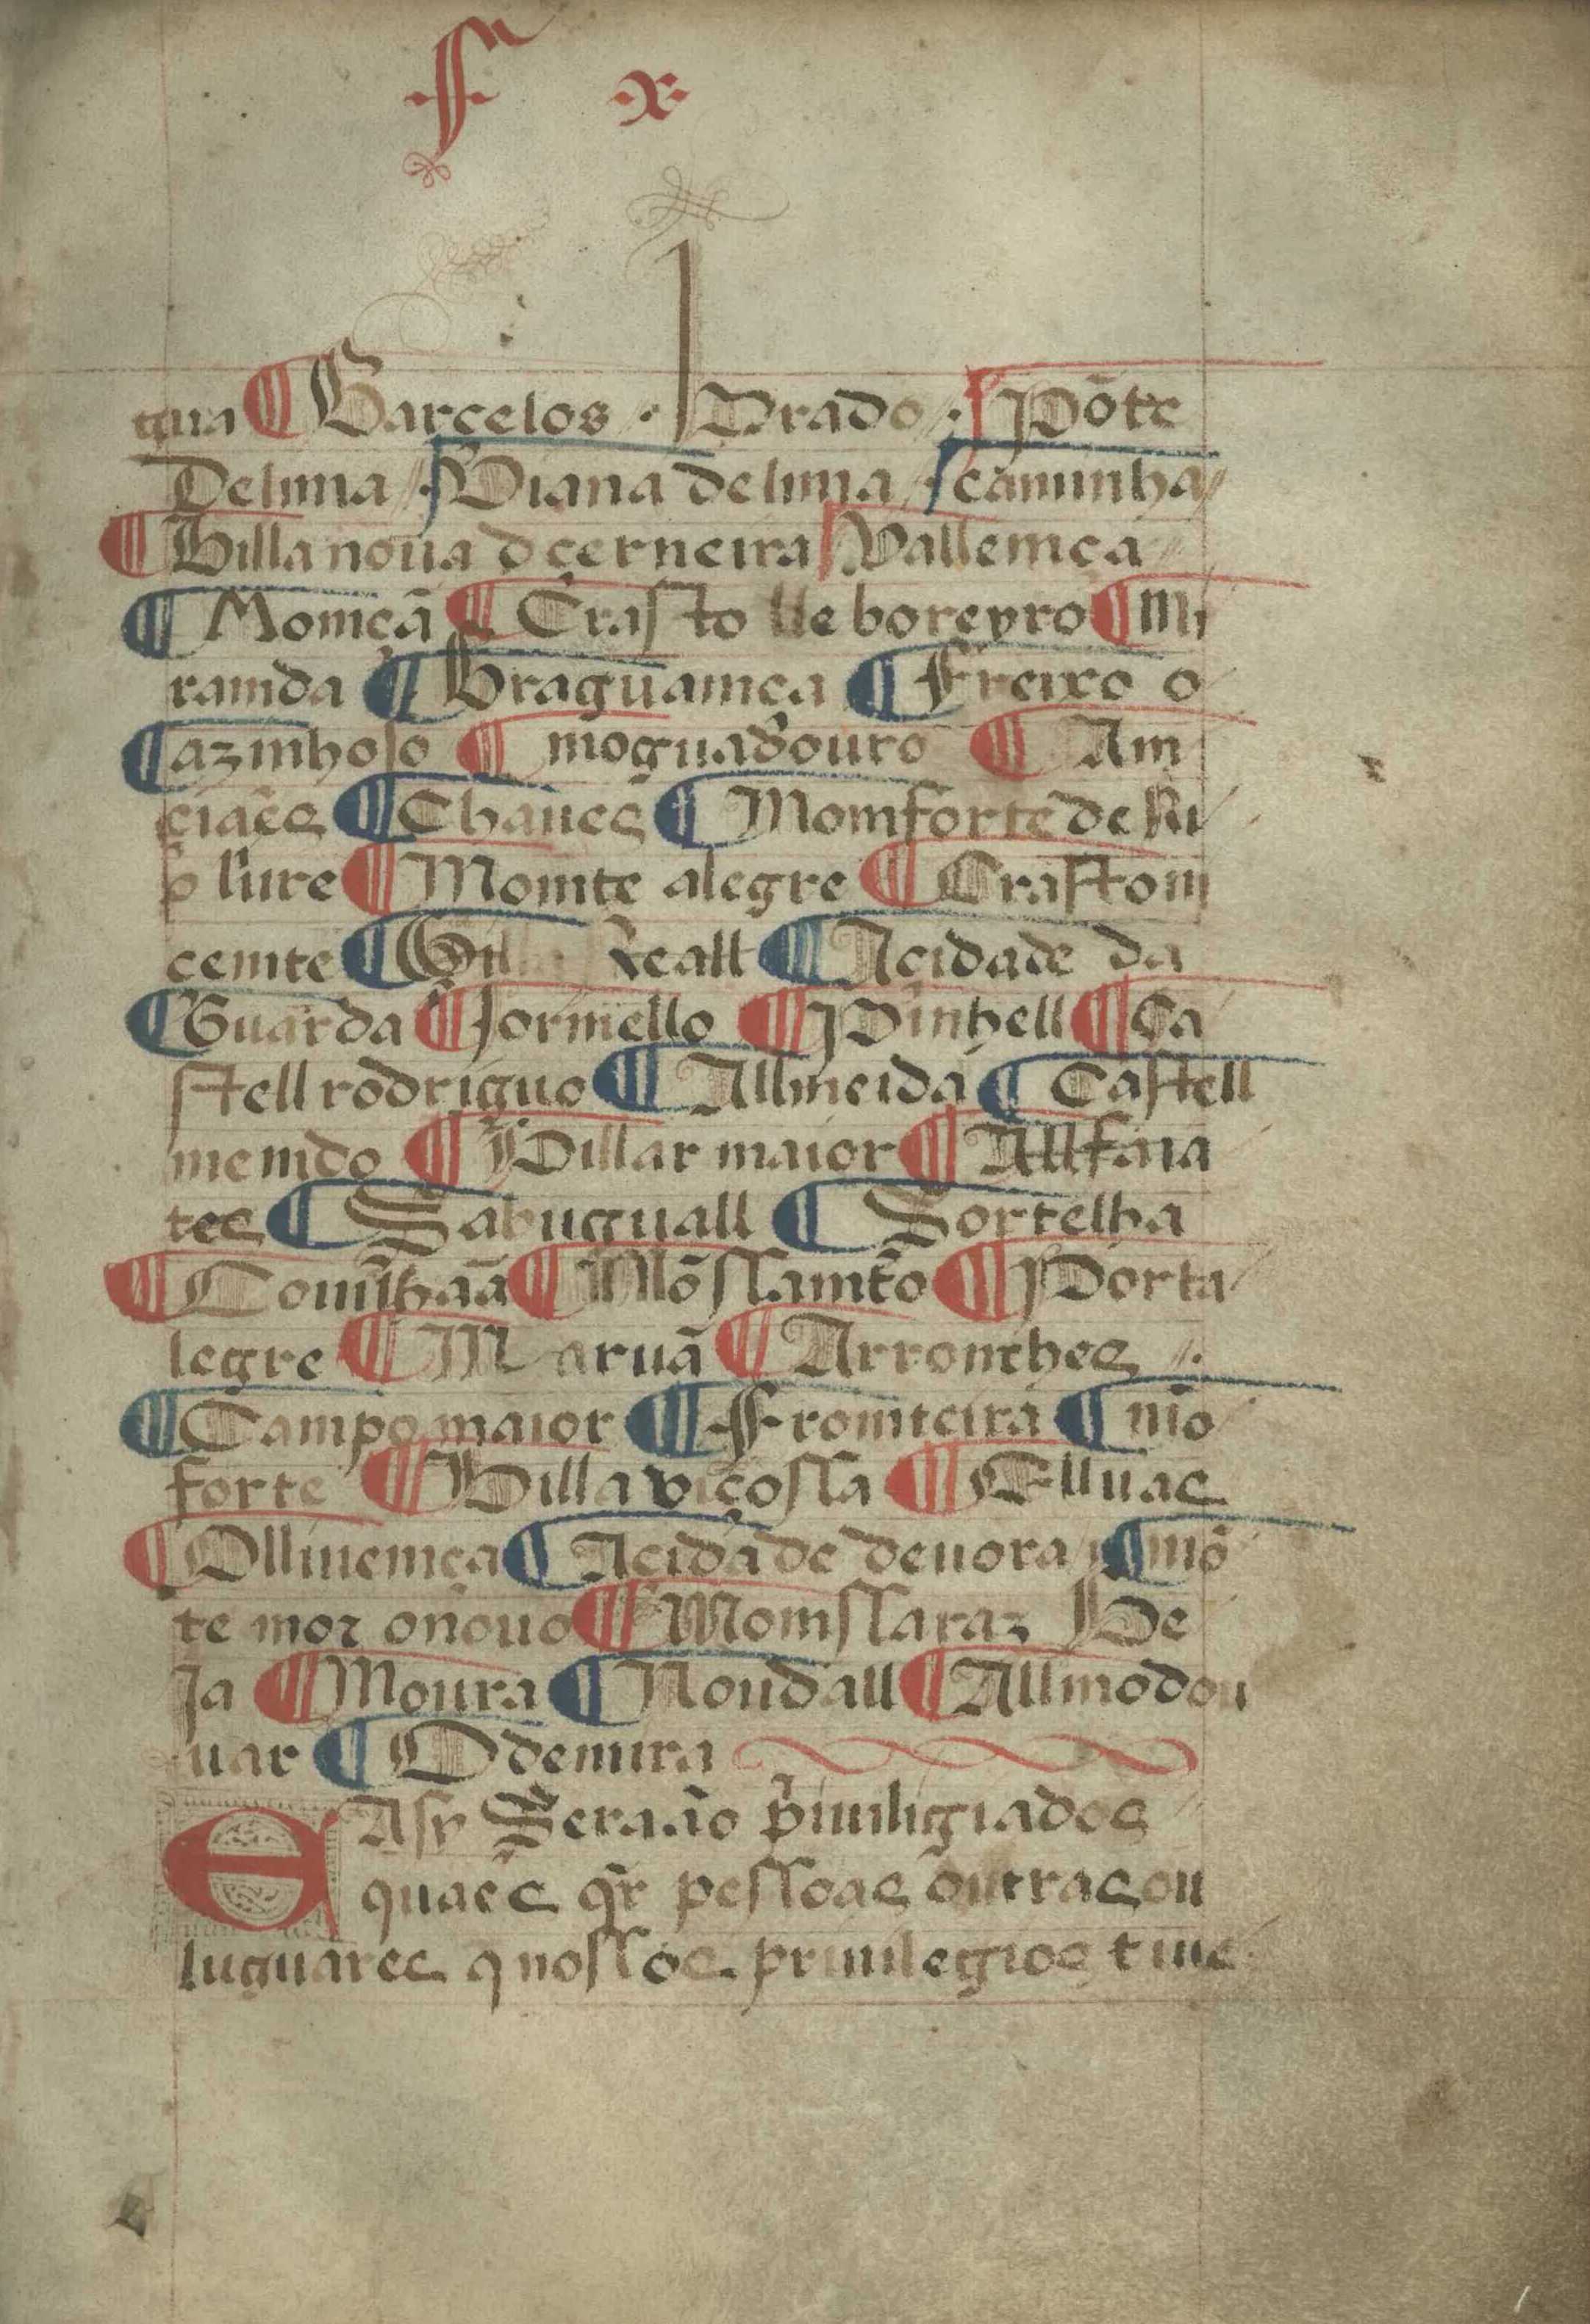 ·f· ·x·
gua ¶ Barcelos · Prado · ¶ Põte
De lima ¶ Viana de lima ¶ caminha
¶ Villa noua d çerneira ¶ Vallemça
¶ Momçã ¶ Crasto lleboreyro ¶ Mi
ramda ¶ Braguamça ¶ Freixo o
¶ azinhoso ¶ moguadouro ¶ Am
ciães ¶ Chaues ¶ Momforte de Ri
liure ¶ Momte alegre ¶ Crasto
cemte ¶ Reall ¶ A cidade da
¶ Guarda ¶ Jormello ¶ Pinhell ¶ Ca
stell rodriguo ¶ Allmeida ¶ Castell
memdo ¶ Villar maior ¶ Allfaia
tes ¶ Sabuguall ¶ Sortelha
¶ Couilhaã ¶ Mõssamto ¶ Porta
legre ¶ Maruã ¶ Arronches
¶ Campo maior ¶ Fromteira ¶ mõ
forte ¶ Villa viçossa ¶ Elluas
¶ Olliuemça ¶ A cidade deuora ¶ mõ
te mor onouo ¶ Momssaraz Be
Ja ¶ Moura ¶ Noudall ¶ Allmodou
uar ¶ Odemira
E Asy Seraão p̃iuiligiados
quaẽs q̃r pessoas outras ou
luguares q nossos priuilegios tiue